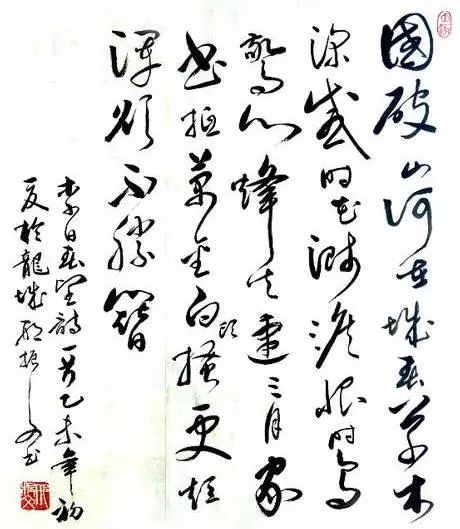 國破山河在城春草木
深感时花濺淚恨別鳥
驚心烽火連三月家
書抵萬金白頭搔更短
渾欲不勝簪
李白春望詩一首乙未年初
夏於龍城振書